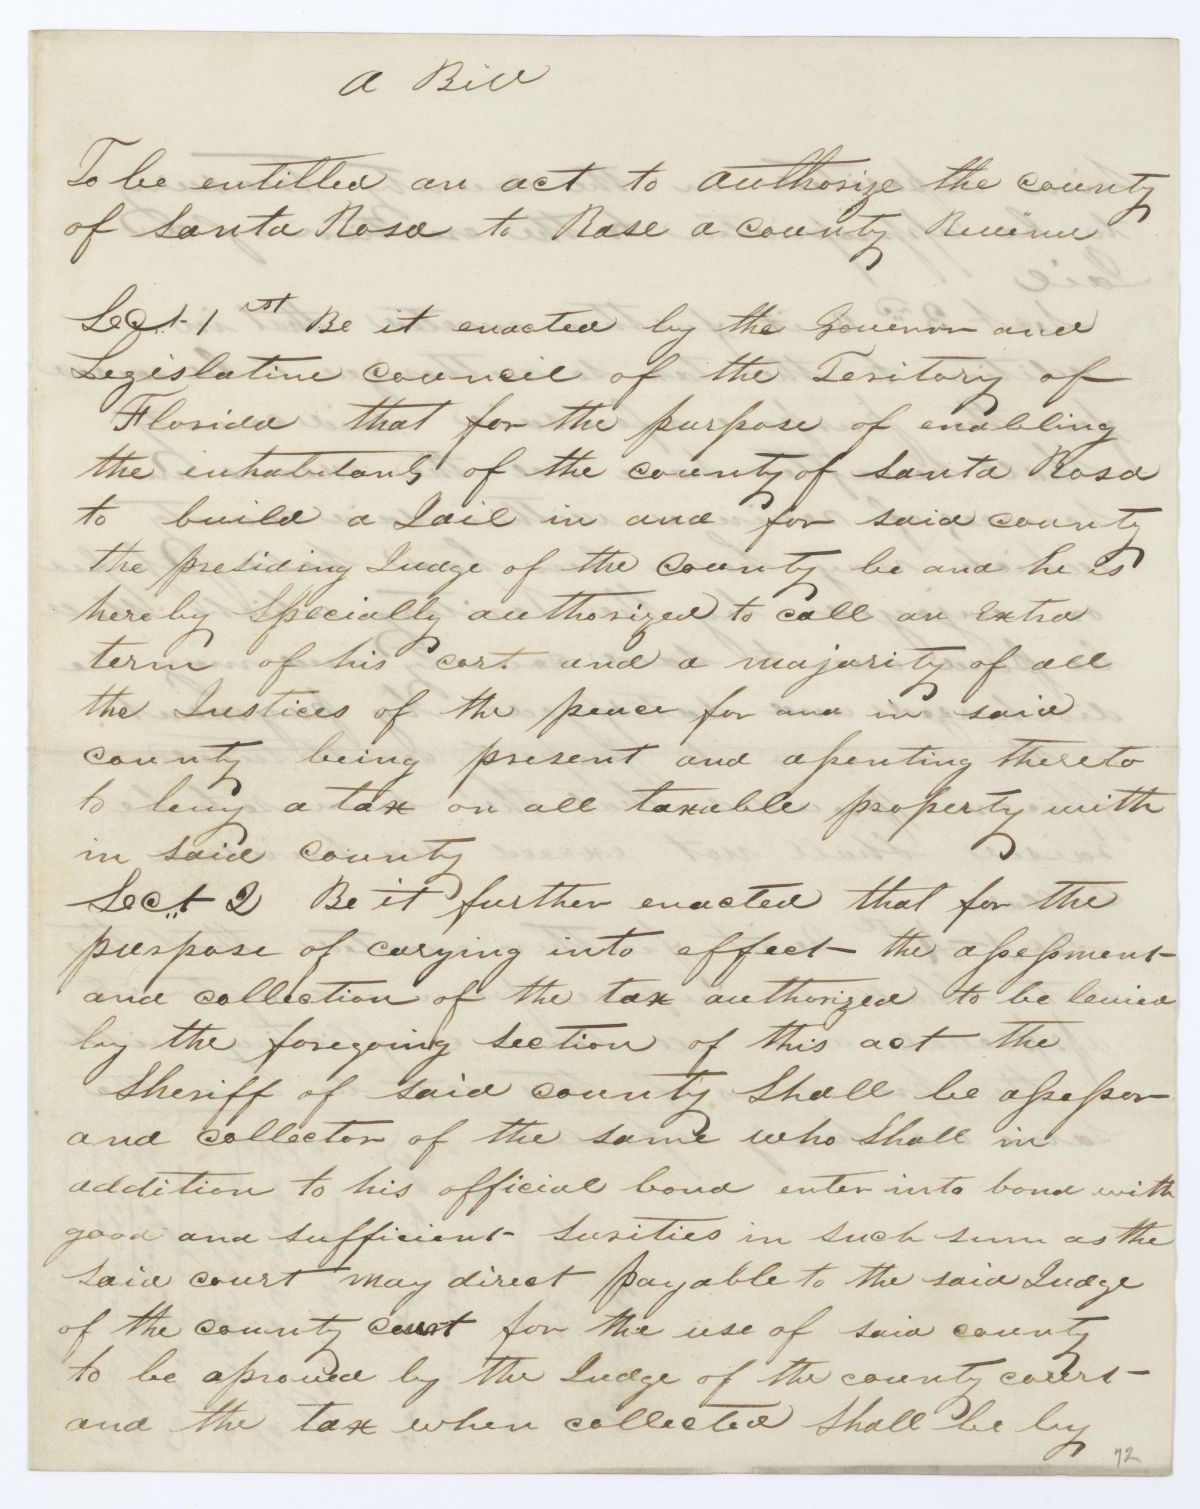 A Bill
To be entitled an act to authorize the county
of Santa Rosa to Rase a county Revenue
Sect. 1st Be it enacted by the Govenor and
Legislative council of the Teritory of
Florida that for the purpose of enabling
the inhabitants of the county of Santa Rosa
to build a Jail in and for said county
the presiding Judge of the County be and he is
hereby Specially authorized to call an Extra
term of his cort and a majority of all
the Justices of the peace for and in said
county being present and asenting thereto
to levy a tax on all taxable property with
in said county
Sect. 2 Be it further enacted that for the
purpose of carying into effect the assessment
and collection of the tax authorized to be levied
by the foregoing section of this act the
Sheriff of said county Shall be assessor
and collector of the same who Shall in
addition to his official bond enter into bond with
good and sufficient Surities in such sum as the
said court may direct payable to the said Judge
of the county court for the use of said county
to be aproved by the Judge of the county court
and the tax when collected Shall be by
72